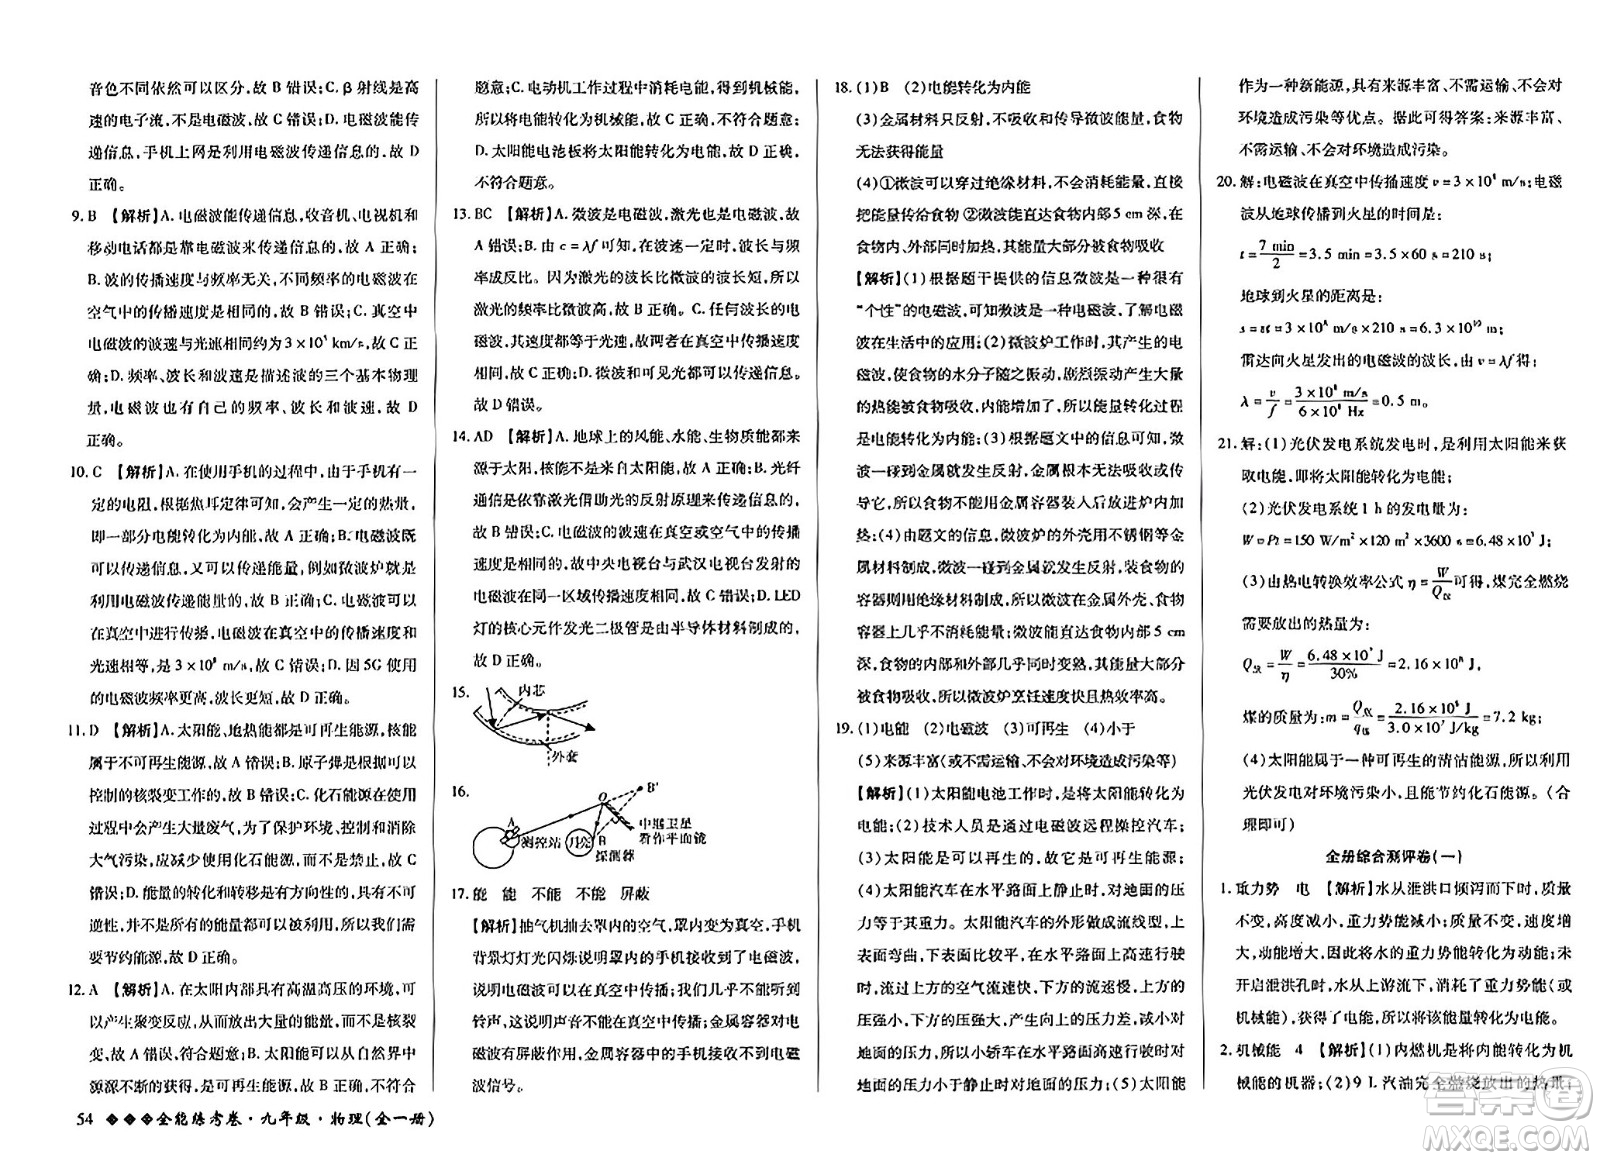 音色不同依然可以区分,故 B 错误;C. β 射线是高
速的电子流,不是电磁波,故 C 错误;D. 电磁波能传
递信息,手机上网是利用电磁波传递信息的,故 D
正确。
9. B 【解析】A. 电磁波能传递信息,收音机、电视机和
移动电话都是靠电磁波来传递信息的,故 A 正确;
B. 波的传播速度与频率无关,不同频率的电磁波在
空气中的传播速度是相同的,故 B 错误;C. 真空中
电磁波的波速与光速一样,约为 3×10⁵ km/s,故 C 正
确;D. 频率、波长和波速是描述波的三个基本物理
量,电磁波也有自己的频率、波长和波速,故 D
正确。
10. C 【解析】A. 在使用手机的过程中,由于手机有一
定的电阻,根据焦耳定律可知,会产生一定的热量,
即一部分电能转化为内能,故 A 正确;B. 电磁波既
可以传递信息,又可以传递能量,例如微波炉就是
利用电磁波传递能量的,故 B 正确;C. 电磁波可以
在真空中传播,电磁波在真空中的传播速度与
光速相等,是 3×10⁸ m/s,故 C 错误;D. 因 5G 使用
的电磁波频率更高,波长更短,故 D 正确。
11. D 【解析】A. 太阳能、地热能都是可再生能源,核能
属于不可再生能源,故 A 错误;B. 原子弹是利用不加
控制的核裂变工作的,故 B 错误;C. 化石能源的利用
过程中会产生大量废气,为了保护环境、控制和消除
大气污染,应减少使用化石能源,而不是禁止,故 C
错误;D. 能量的转化和转移是有方向性的,具有不可
逆性,并不是所有的能量都可以被利用,所以我们需
要节约能源,故 D 正确。
12. A 【解析】A. 在太阳内部具有高温高压的环境,可
以产生聚变反应,从而放出大量的能量,而不是核裂
变,故 A 错误,符合题意;B. 太阳能可以从自然界中
源源不断的获得,是可再生能源,故 B 正确,不符合
54 全能练考卷·九年级·物理(全一册)
题意;C. 电动机工作过程中消耗电能,获得机械能,
所以将电能转化为机械能,故 C 正确,不符合题意;
D. 太阳能电池板将太阳能转化为电能,故 D 正确,
不符合题意。
13. BC 【解析】A. 微波是电磁波,激光也是电磁波,故
A 错误;B. 由 c = λf 可知,在波速一定时,波长与频
率成反比。因为激光的波长比微波的波长短,所以
激光的频率比微波高,故 B 正确;C. 任何波长的电
磁波,其速度都等于光速,故两者在真空中传播速
度一样,故 C 正确;D. 微波和可见光都可以传递信息,
故 D 错误。
14. AD 【解析】A. 地球上的风能、水能、生物质能都来
源于太阳,所以它们实际来自太阳能,故 A 正确;B. 光纤
通信是依靠激光借助光的反射原理来传递信息的,
故 B 错误;C. 电磁波的波速在真空或空气中的传播
速度是相同的,故中央电视台与武汉电视台发射的
电磁波在同一区域传播速度相同,故 C 错误;D. LED
灯的核心元件发光二极管是由半导体材料制成的,
故 D 正确。
15.
内芯
外套
16.
B′
O
A
中继卫星
看作平面镜
测控站
月亮
B
探测器
17. 能 能 不能 不能 屏蔽
【解析】抽气机抽去罩内的空气,罩内变为真空,手机
背景灯灯光闪烁说明罩内的手机接收到了电磁波,
说明电磁波可以在真空中传播;我们几乎听不到手机
铃声,说明声音不能在真空中传播;金属容器对电
磁波有屏蔽作用,金属容器中的手机接收不到电磁
波信号。
18. (1)B (2)电能转化为内能
(3)金属材料只反射,不吸收和传导微波能量,食物
无法获得能量
(4)①微波可以穿过绝缘材料,不会消耗能量,直接
把能量传给食物 ②微波能直达食物内部 5 cm 深,在
食物内、外部同时加热,其大部分能量被食物吸收
【解析】(1)根据题干提供的信息微波是一种有
“个性”的电磁波,所以微波是一种电磁波,是电磁
波在生活中的应用;(2)微波炉工作时,其产生的电
磁波,使食物的水分子随之振动,剧烈振动产生大量
的热能被食物吸收,内能增大,所以工作时的能量转化
是电能转化为内能;(3)根据题文中的信息可知,微
波一碰到金属就发生反射,金属根本无法吸收或传
导它,所以食物不能用金属容器装入后放进炉内加
热;(4)由题文的信息,微波炉的外壳用不锈钢等金
属材料制成,微波一碰到金属就发生反射,装食物的
容器则用绝缘材料制成,所以微波在金属外壳、食物
容器上几乎不会消耗能量;微波能直达食物内部 5 cm
深,食物的内部和外部几乎同时变热,其大部分能量
被食物吸收,所以微波炉烹饪速度快且效率高。
19. (1)电能 (2)电磁波 (3)可再生 (4)小于
(5)来源丰富(或不需运输、不会对环境造成污染等)
【解析】(1)太阳能电池工作时,是将太阳能转化为
电能;(2)技术人员是通过电磁波远程操控汽车;
(3)太阳能是可以再生的,所以是可再生能源;
(4)太阳能汽车在水平路面上静止时,对地面的压
力等于其重力。太阳能汽车的外形做成流线型,上
表面弯曲,下表面水平,汽车在水平路面上高速行驶
时,流过上方的空气流速快,下方的流速慢,上方的
压强小,下方的压强大,产生向上的升力,从而减小对
地面的压力,所以小轿车在水平路面上高速行驶时对
地面的压力会小于静止时对地面的压力;(5)太阳能
作为一种新能源,具有来源丰富、不需运输、不会对
环境造成污染等优点。据此可得答案:来源丰富、
不需运输、不会对环境造成污染。
20. 解:电磁波在真空中传播速度 v = 3×10⁸ m/s,电磁
波从地球传播到火星的时间是:
t = 7 min / 2 = 3.5 min = 3.5×60 s = 210 s;
地球到火星的距离是:
s = vt = 3×10⁸ m/s×210 s = 6.3×10¹⁰ m;
雷达向火星发出的电磁波的波长,由 v = λf 得:
λ = v / f = 3×10⁸ m/s / 6×10⁸ Hz = 0.5 m。
21. 解:(1)光伏发电系统发电时,是利用太阳能来获
取电能,即将太阳能转化为电能;
(2)光伏发电系统 1 h 的发电量为:
W = Pt = 150 W/m²×120 m²×3600 s = 6.48×10⁷ J;
(3)由热电转换效率公式 η = W / Q放 可得,煤完全燃烧
需要放出的热量为:
Q放 = W / η = 6.48×10⁷ J / 30% = 2.16×10⁸ J,
煤的质量为:m = Q放 / q煤 = 2.16×10⁸ J / 3.0×10⁷ J/kg = 7.2 kg;
(4)太阳能属于一种可再生的清洁能源,所以太阳能
光伏发电对环境污染小,且能节约化石能源。(合
理即可)
全册综合测评卷(一)
1. 重力势 电 【解析】水从泄洪口倾泻而下时,质量
不变,高度减小,重力势能减小;质量不变,速度增
大,动能增大,因此将水的重力势能转化为动能;在未
开启泄洪孔时,水从上游流下,消耗了重力势能(或
机械能),获得了电能,所以将该能量转化为电能。
2. 机械能 4 【解析】(1)内燃机是将内能转化为
机械能的机器;(2)9 L 汽油完全燃烧放出的热量:
答案圈
MXQE.COM